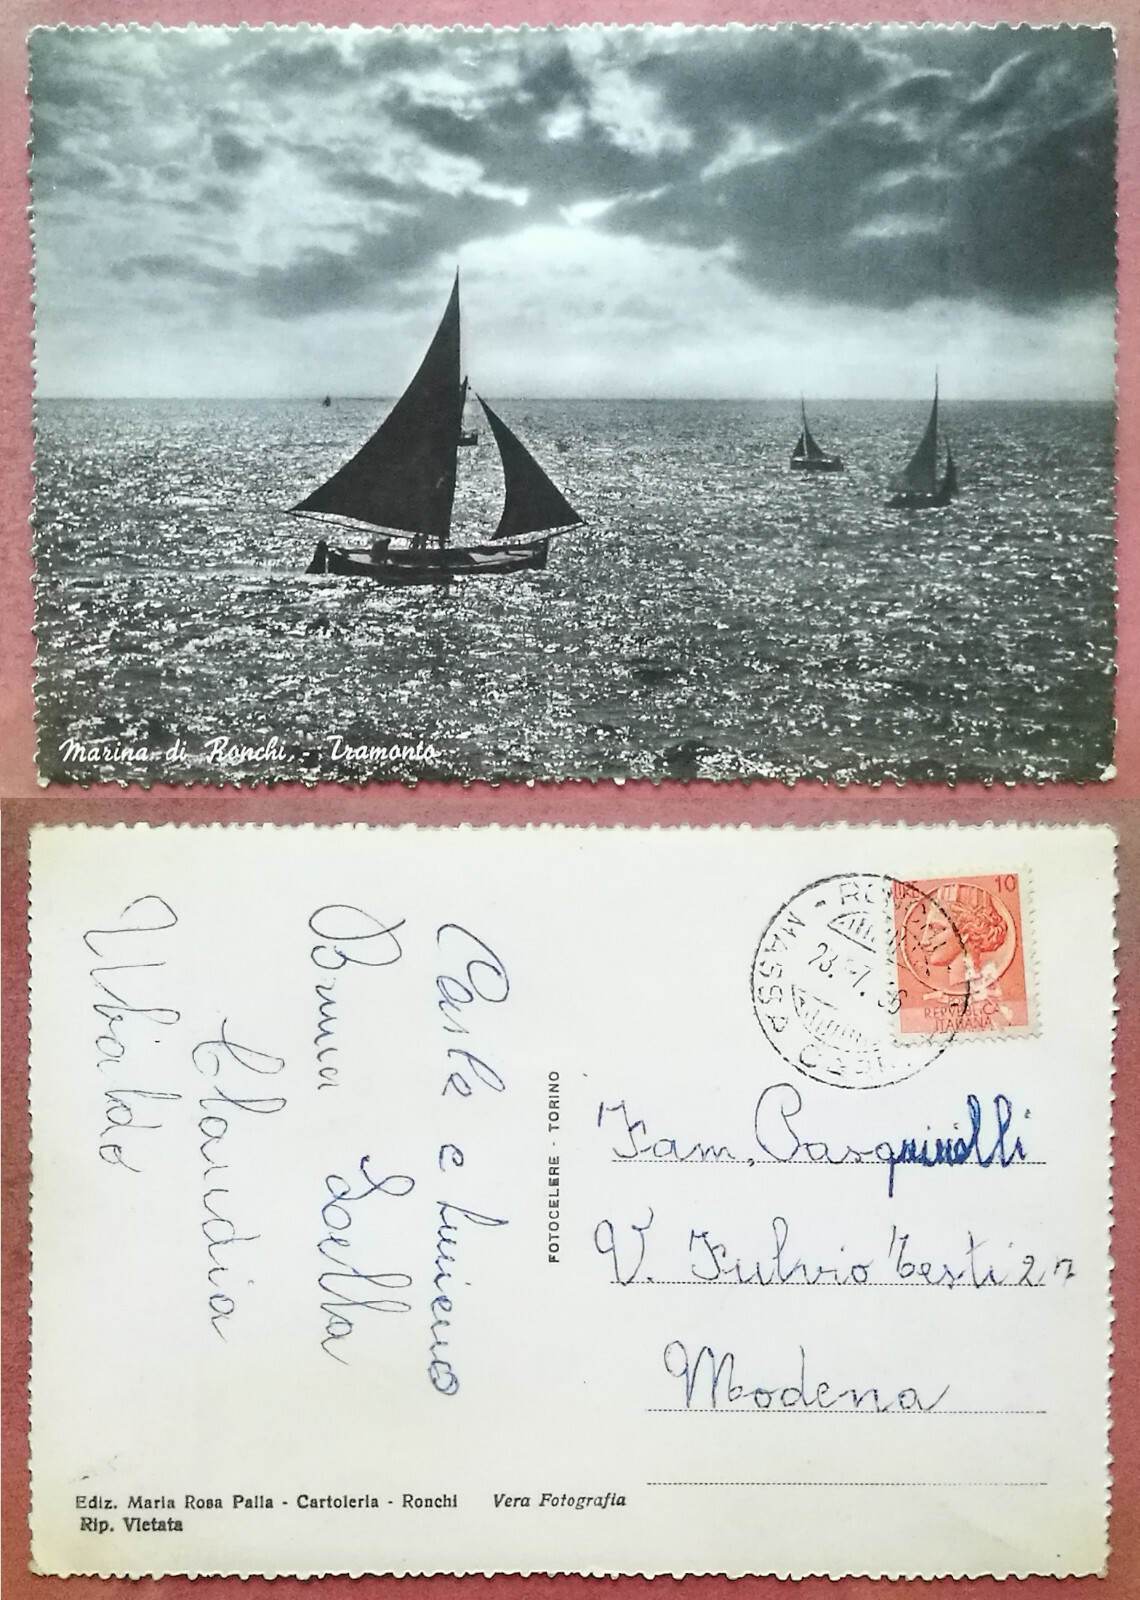 Marina di Ronchi - Tramonto
LIRE 10
REPVBBLICA
ITALIANA
RONCHI
MASSA
23.-7.
Carla e Luciano
Bruna Loella
Claudia
Ubaldo
FOTOCELERE - TORINO
Fam. Pasquinelli
V. Fulvio Testi 27
Modena
Ediz. Maria Rosa Palla - Cartoleria - Ronchi Vera Fotografia
Rip. Vietata